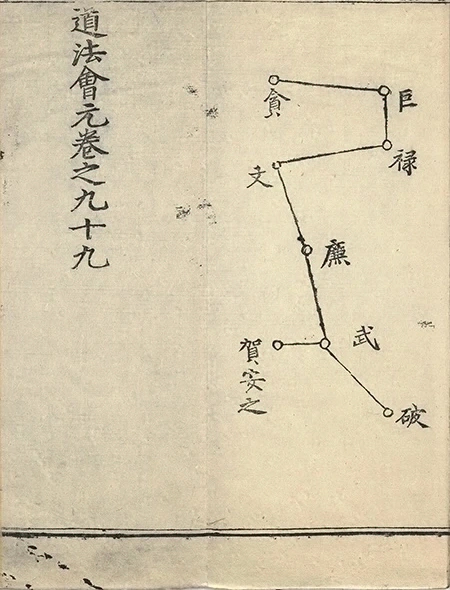 貪
巨
禄
文
廉
武
賀安之
破
道法會元卷之九十九